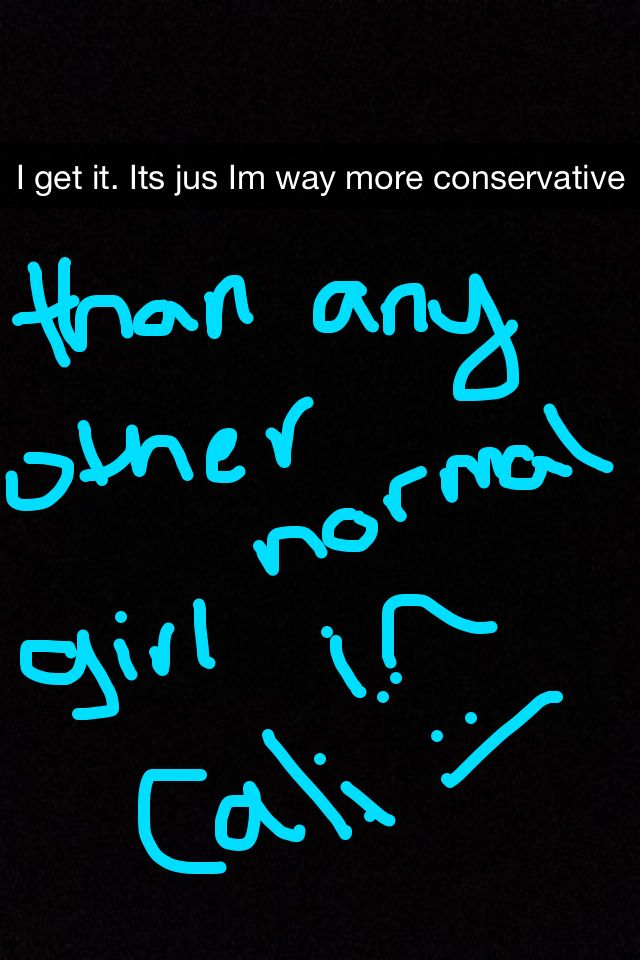 I get it. Its jus Im way more conservative
than any
other
normal
girl in
Cali :/